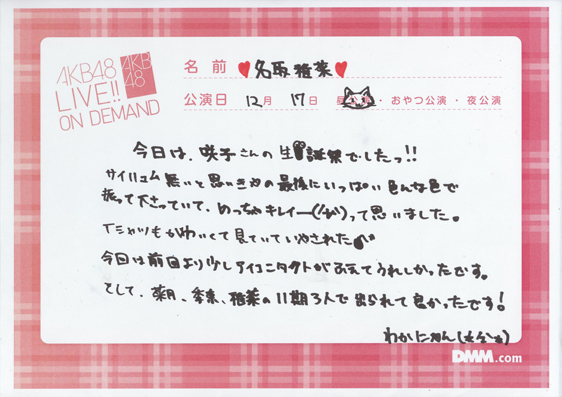 AKB48
LIVE!!
ON DEMAND
AKB
48
名 前 ♥名取稚菜♥
公演日 12月 17日 ・おやつ公演・夜公演
今日は、咲子さんの生誕祭でしたっ!!
サイリュム無いと思いきやの最後にいっぱい色んな色で
振って下さっていて、めっちゃキレイーって思いました。
Tシャツもかわいくて見ていていやされた
今回は前回より少しアイコンタクトがあえてうれしかったです。
そして、葉月、李奈、稚菜の11期3人で出られて良かったです!
わかにゃん
DMM.com